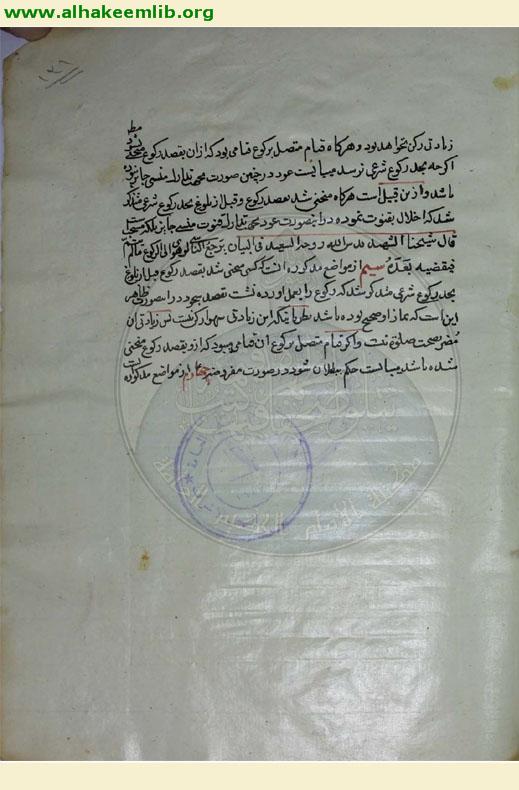 www.alhakeemlib.org
١٣١
زیادتی رکن نخواهد بود و هرگاه قیام متصل برکوع قیامی بود که ازان بقصد رکوع منحنی
اگرچه بحد رکوع شرعی نرسد میبایست عود و درچنین صورت محض تدارك منسی جایز نبوده
باشد و ازین قبیل است هرگاه منحنی شد بقصد رکوع و قبل از بلوغ بحد رکوع شرعی متذکر
شد که اخلال بقنوت نموده در اینصورت عود بجهة تدارك قنوت منسی جایز بلکه مستحب
قال شیخنا الشهید قدس الله روحه السعید فی البیان یرجع الناسی لو هوی الی الرکوع مالم
فیقضیه بعده سیم از مواضع مذکوره انست که کسی منحنی شد بقصد رکوع قبل از بلوغ
بحد رکوع شرعی متذکر شد که رکوع را بعمل اورده نشست بقصد سجود در اینصورت ظاهر
این است که نماز او صحیح بوده باشد نظر باینکه این زیادتی سهوا رکن نیست پس زیادتی ان
مضر بصحت صلوة نیست و اگر قیام متصل برکوع ان قیامی میبود که ازو بقصد رکوع منحنی
شده باشد میبایست حکم ببطلان شود در صورت مفروضه چهارم از مواضع مذکوره